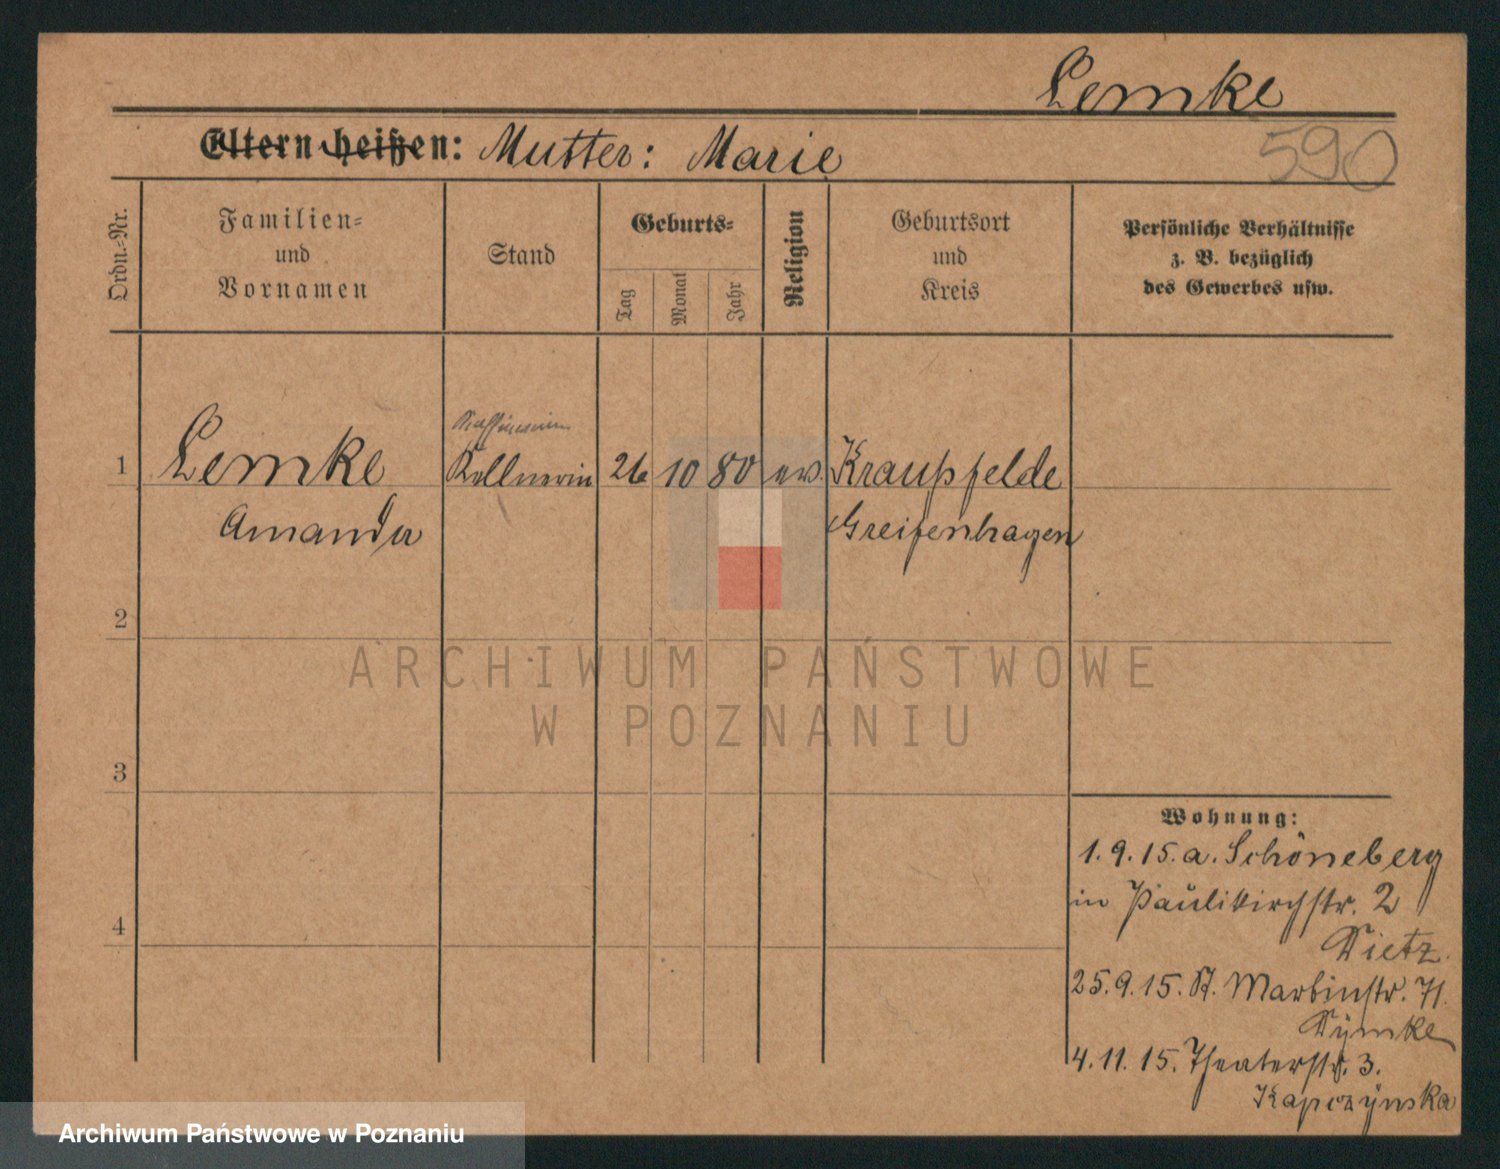 Lemke
590
Eltern heißen: Mutter: Marie
Ordn.=Nr.
Familien=
und
Vornamen
Stand
Geburts=
Tag
Monat
Jahr
Religion
Geburtsort
und
Kreis
Persönliche Verhältnisse
z. B. bezüglich
des Gewerbes usw.
1 Lemke Kellnerin 26 10 80 ev. Kraupfelde
Amanda Greifenhagen
2
ARCHIWUM PAŃSTWOWE
W POZNANIU
3
Wohnung:
1.9.15. a. Schöneberg
in Paulikirchstr. 2
Vietz.
4
25.9.15. St. Martinstr. 71.
Dymke
4.11.15. Theaterstr. 3.
Kapczynska
Archiwum Państwowe w Poznaniu